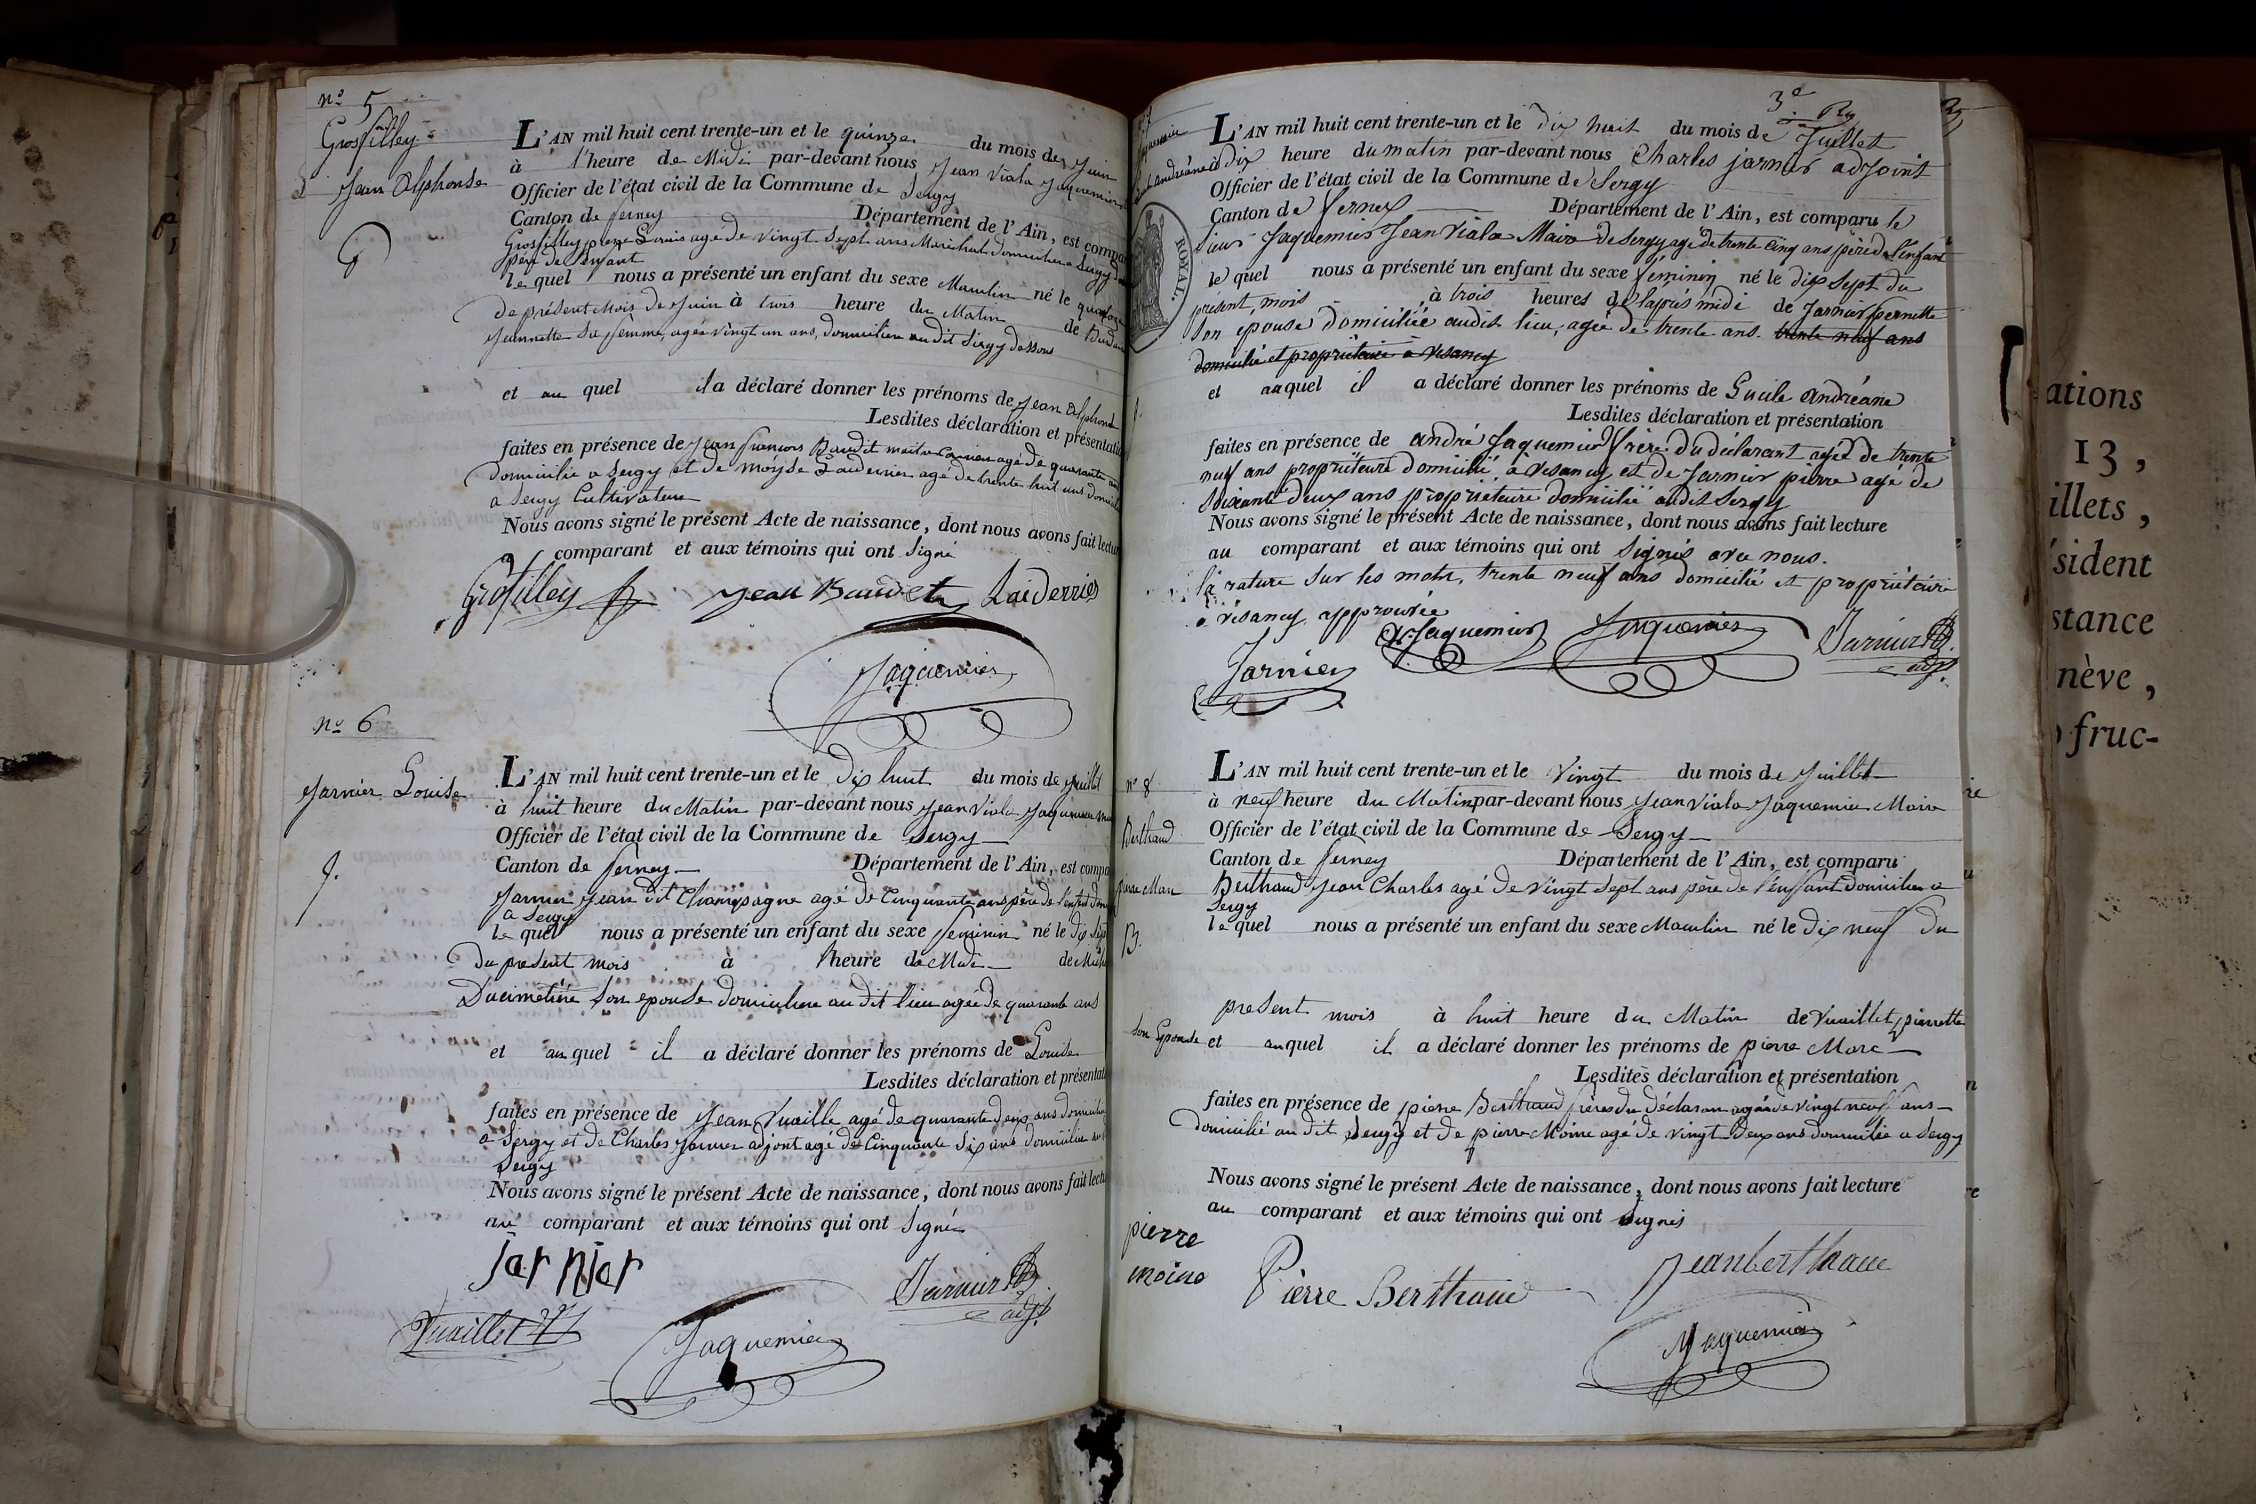 nº 5
Grosfilley
Jean Alphonse
G
L'AN mil huit cent trente-un et le quinze du mois de Juin
à l'heure de Midi par-devant nous Jean Viala Jaquemier
Officier de l'état civil de la Commune de Sergy
Canton de Ferney Département de l'Ain, est compar
Grosfilley pierre Louis agé de vingt Sept ans Maréchal domicilier a Sergy
père de l'enfant
le quel nous a présenté un enfant du sexe Masculin né le quatorze
de présent Mois de Juin à trois heure du Matin de
Jeannette Sa femme, agée vingt un ans, domicilière au dit Sergy dessous
et au quel il a déclaré donner les prénoms de Jean Alphonse
Lesdites déclaration et présentation
faites en présence de Jean François Baudit agé de quarante
domicilié a Sergy et de Moÿse Laiderrier agé de trente huit ans domicilié
a Sergy Cultivateur
Nous avons signé le présent Acte de naissance, dont nous avons fait lecture
comparant et aux témoins qui ont Signé
Grosfilley Jean Baudet Laiderrier
Jaquemier
nº 6
Jarnier Louise
J.
L'AN mil huit cent trente-un et le Dix huit du mois de Juillet
à huit heure du Matin par-devant nous Jean Viala Jaquemier
Officier de l'état civil de la Commune de Sergy
Canton de Ferney Département de l'Ain, est compa
Jarnier Jean dit Champagne agé de Cinquante ans père de l'enfant
a Sergy
le quel nous a présenté un enfant du sexe feminin né le dix Sept
Du present mois à l'heure de Midi de
Ducimetière Son epouse domicilière au dit lieu agée de quarante ans
et au quel il a déclaré donner les prénoms de Louise
Lesdites déclaration et présentat
faites en présence de Jean Vuaille agé de quarante deux ans domicilié
a Sergy et de Charles Jarnier adjoint agé de Cinquante Six ans domicilier
Sergy
Nous avons signé le présent Acte de naissance, dont nous avons fait lectu
au comparant et aux témoins qui ont Signé
jarnjer
Jarnier adj.
Vuaillet
Jaquemier
3e
L'AN mil huit cent trente-un et le dix huit du mois de Juillet
à dix heure du matin par-devant nous Charles jarnier adjoint
Officier de l'état civil de la Commune de Sergy
Canton de Fernex Département de l'Ain, est comparu le
Sieur Jaquemier Jean Viala Maire de Sergy agé de trente cinq ans père de l'enfant
ROYALE.
le quel nous a présenté un enfant du sexe féminin né le dix sept du
present, mois à trois heures de l'après midi de Jarnier pernette
son epouse domiciliée audit lieu, agée de trente ans. trente neuf ans
domicilié et propriétaire à Vesancy
et auquel il a déclaré donner les prénoms de Lucile andréane
Lesdites déclaration et présentation
faites en présence de andré Jaquemier frère du déclarant agé de trente
neuf ans propriétaire domicilié à Vesancy et de Jarnier pierre agé de
Soixante deux ans propriétaire domicilié audit Sergy
Nous avons signé le présent Acte de naissance, dont nous avons fait lecture
au comparant et aux témoins qui ont Signés avec nous.
la rature sur les mots, trente neuf ans domicilié et propriétaire
à vésancy approuvée
Jaquemier Jaquemier Jarnier adj.
Jarnier
nº 8
Berthaud
pierre Marc
B.
L'AN mil huit cent trente-un et le Vingt du mois de Juillet
à neuf heure du Matin par-devant nous Jean Viala Jaquemier Maire
Officier de l'état civil de la Commune de Sergy
Canton de Ferney Département de l'Ain, est comparu
Berthaud Jean Charles agé de Vingt Sept ans père de l'enffant Domicilier a
Sergy
le quel nous a présenté un enfant du sexe Masculin né le dix neuf Du
present mois à huit heure du Matin de Vuaillet pierrette
Son Epouse et auquel il a déclaré donner les prénoms de pierre Marc
Lesdites déclaration et présentation
faites en présence de pierre Berthaud frère du déclaran agé de vingt neuf ans
Domicilié au dit Sergy et de pierre Moine agé de vingt Deux ans domicilée a Sergy
Nous avons signé le présent Acte de naissance, dont nous avons fait lecture
au comparant et aux témoins qui ont signés
pierre
moine
Pierre Berthaud
Jean berthaud
Jaquemier
ations
13,
illets,
ésident
stance
nève,
fruc-